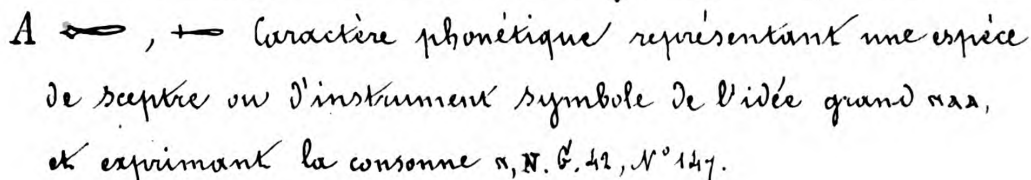 A , Caractère phonétique représentant une espèce
de sceptre ou d'instrument symbole de l'idée grand ⲛⲁⲁ,
et exprimant la consonne ⲛ, N. G. 42, N° 147.